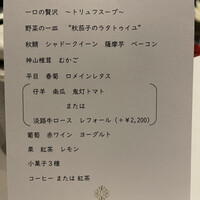 一口の贅沢 ～トリュフスープ～
野菜の一皿 “秋茄子のラタトゥイユ”
秋鯖 シャドークイーン 薩摩芋 ベーコン
神山椎茸 むかご
平目 春菊 ロメインレタス
仔羊 南瓜 鬼灯トマト
または
淡路牛ロース レフォール（＋￥2,200）
葡萄 赤ワイン ヨーグルト
栗 紅茶 レモン
小菓子３種
コーヒー または 紅茶